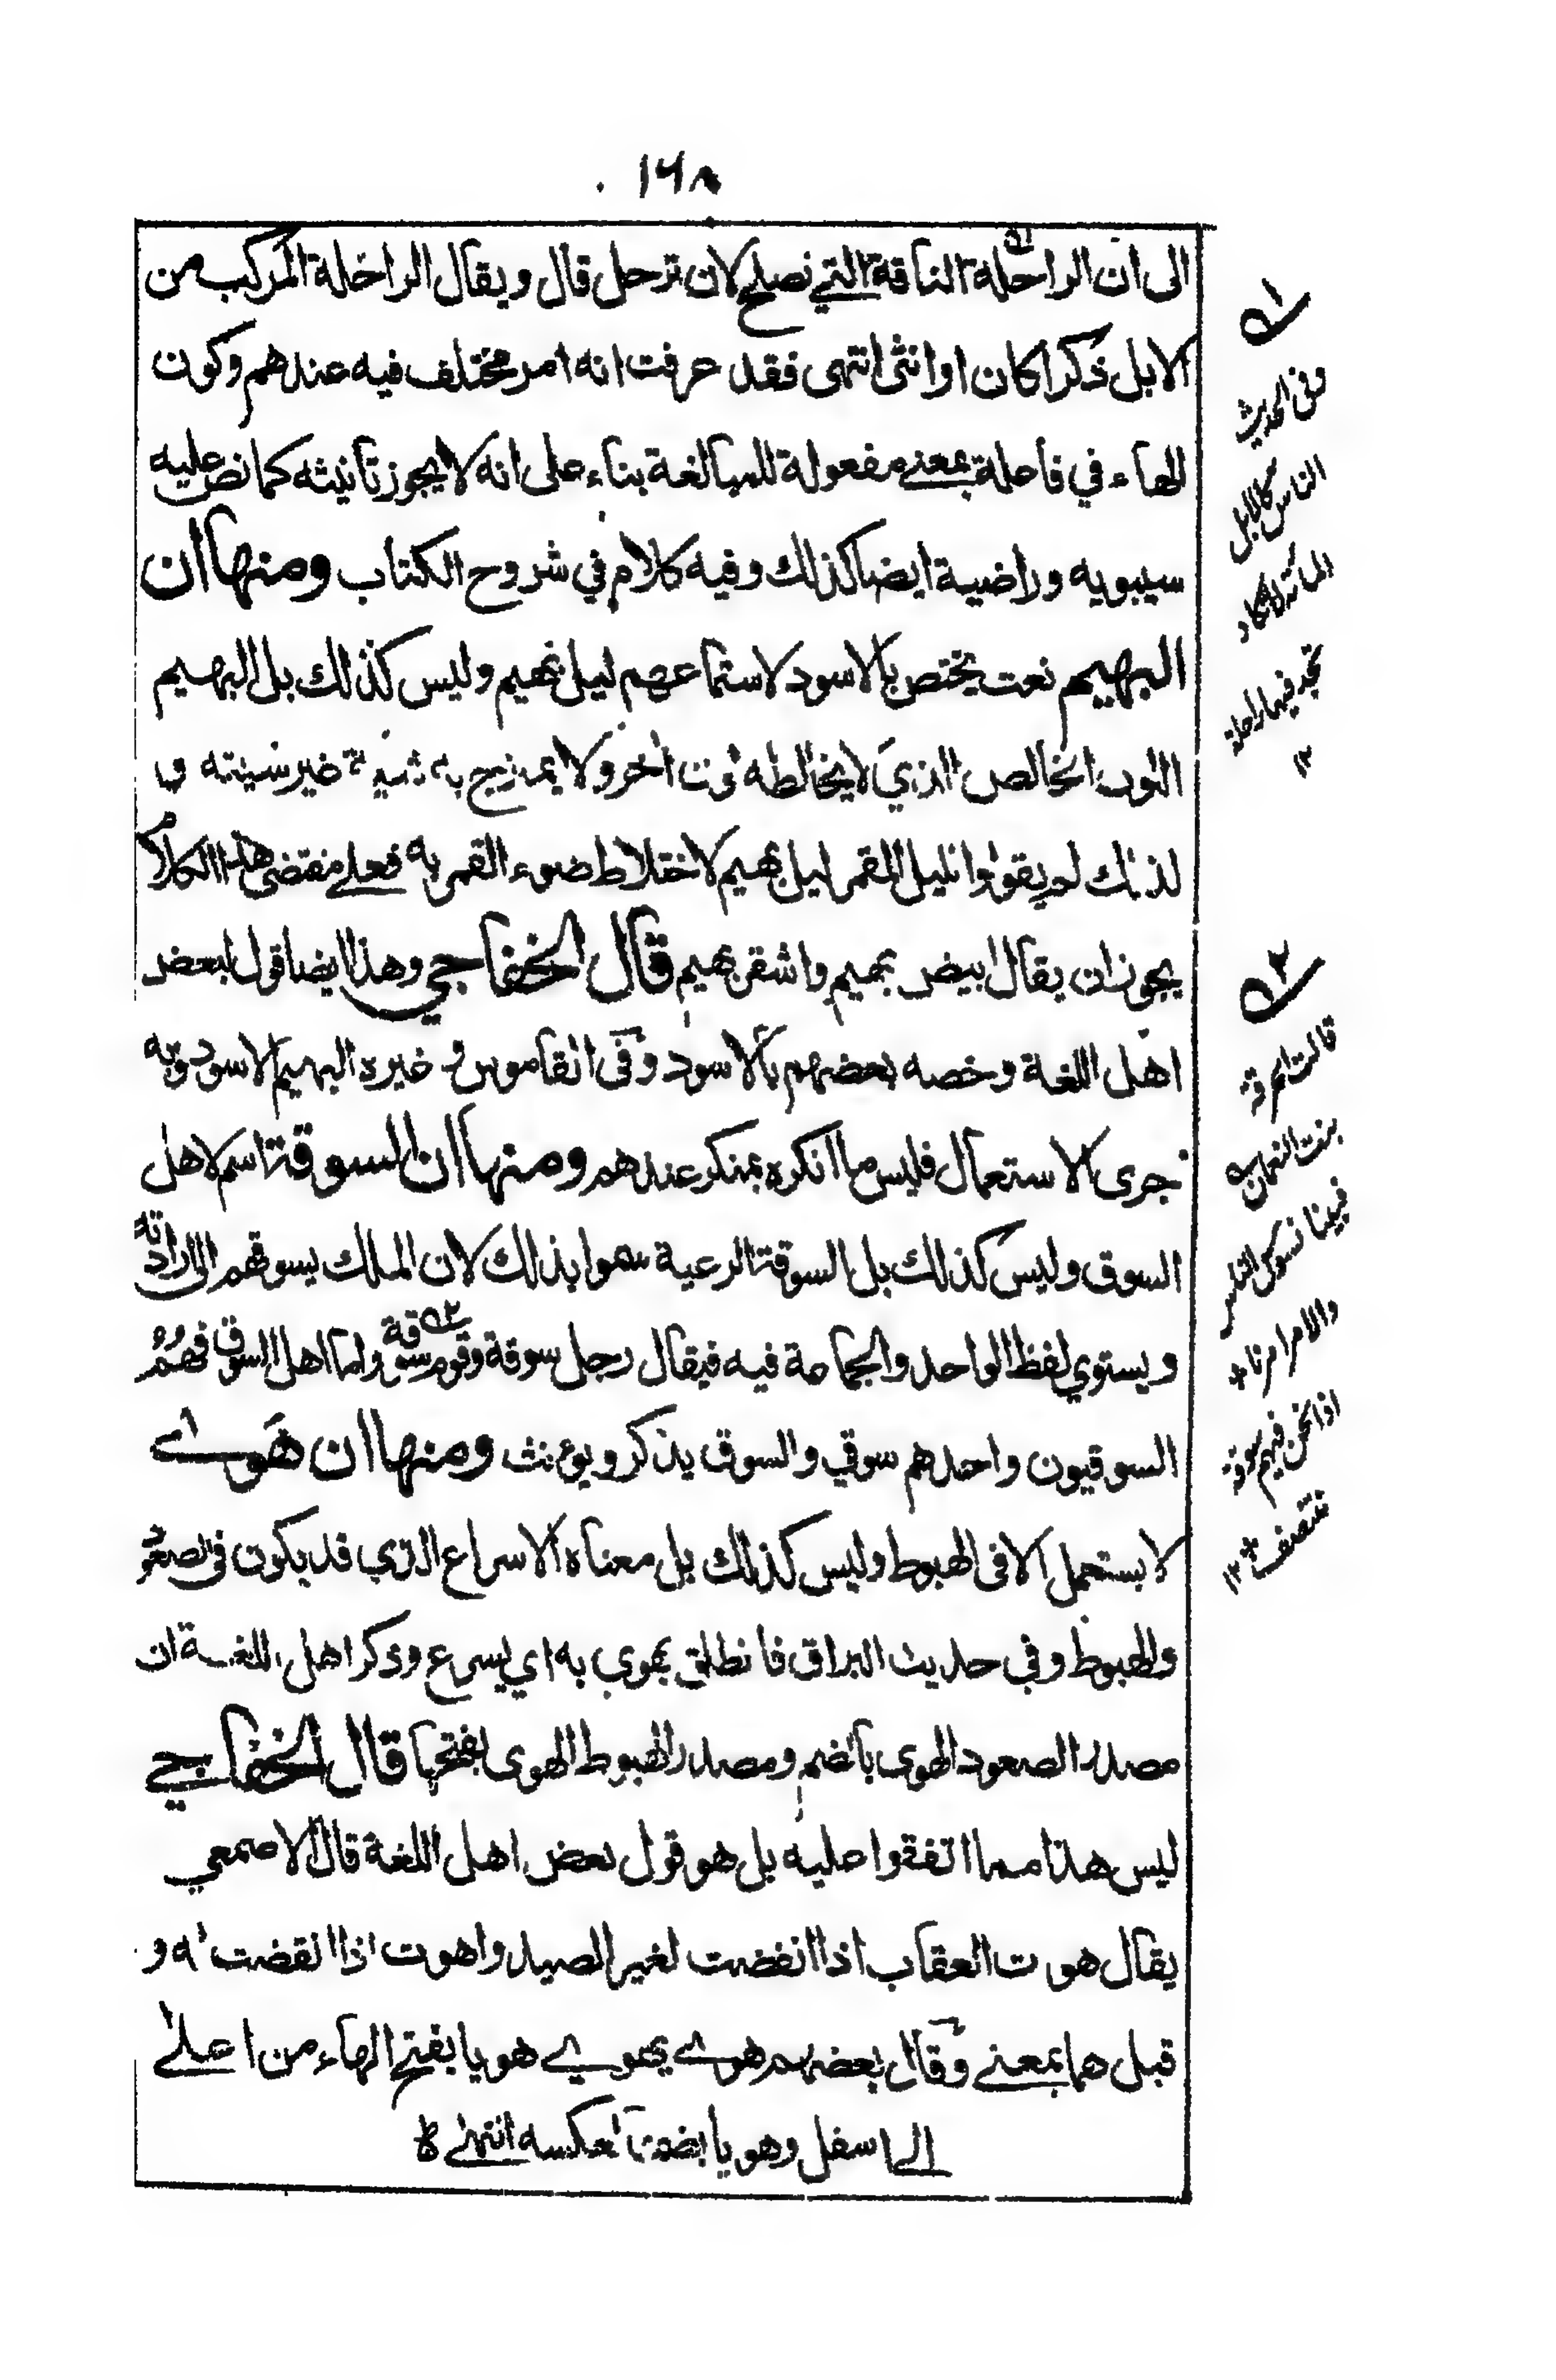 ١٦٨
الى ان الراحلة الناقة التي تصلح لان ترحل قال ويقال الراحلة المركب من
الابل ذكرا كان او انثى انتهى فقد عرفت انه امر مختلف فيه عندهم وكون
الهاء في فاعلة بمعنى مفعولة للمبالغة بناء على انه لا يجوز تانيثه كما نص عليه
سيبويه وراضية ايضا كذلك وفيه كلام في شروح الكتاب ومنها ان
البهيم نعت يختص بالاسود لاستماعهم ليل بهيم وليس كذلك بل البهيم
اللون الخالص الذي لا يخالطه لون اخر ولا يمتزج به شية غير شيته و
لذلك لم يقولوا لليل المقمر ليل بهيم لاختلاط ضوء القمر به فعلى مقتضى هذا الكلام
يجوز ان يقال ابيض بهيم واشقر بهيم قال الخفاجي وهذا ايضا قول لبعض
اهل اللغة وخصه بعضهم بالاسود وفي القاموس وغيره البهيم الاسود وبه
جرى الاستعمال فليس ما انكره بمنكر عندهم ومنها ان السوقة اسم لاهل
السوق وليس كذلك بل السوقة الرعية سموا بذلك لان الملك يسوقهم الى ارادته
ويستوي لفظ الواحد والجماعة فيه فيقال رجل سوقة وقوم سوقة واما اهل السوق فهم
السوقيون واحدهم سوقي والسوق يذكر ويؤنث ومنها ان هوى
لا يستعمل الا في الهبوط وليس كذلك بل معناه الاسراع الذي قد يكون في الصعود
والهبوط وفي حديث البراق فانطلق يهوي به اي يسرع وذكر اهل اللغة ان
مصدر الصعود الهوى بالضم ومصدر الهبوط الهوى بفتحها قال الخفاجي
ليس هذا مما اتفقوا عليه بل هو قول بعض اهل اللغة قال الاصمعي
يقال هوت العقاب اذا انقضت لغير الصيد واهوت اذا انقضت له و
قيل هما بمعنى وقال بعضهم هوى يهوي هويا بفتح الهاء من اعلى
الى اسفل وهويا بضمها لعكسه انتهى
١
وفي الحديث
الناس كالابل
المائة لا تكاد
تجد فيها راحلة
١٢
٢
قالت الحرقة
بنت النعمان
فبينا نسوس الناس
والامر امرنا
اذا نحن فيهم سوقة
نتنصف ١٢